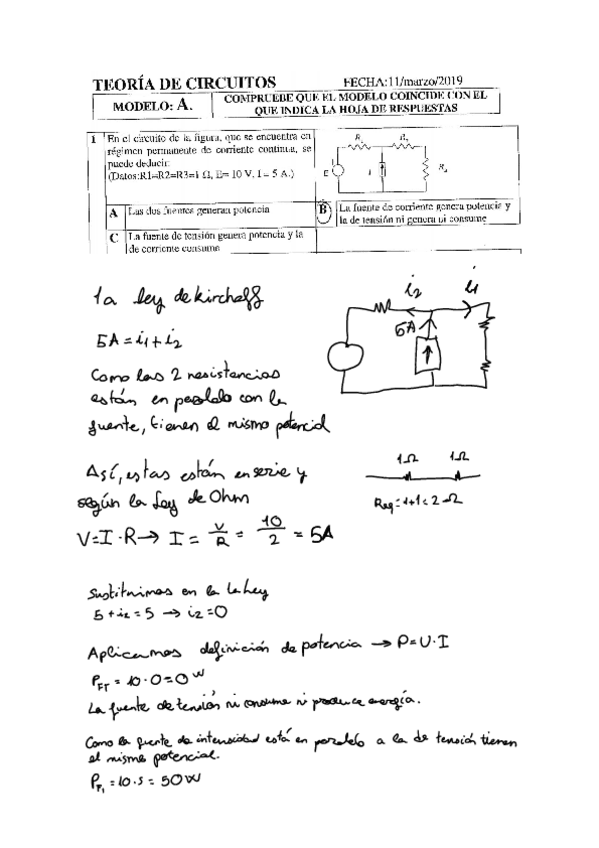 TEORÍA DE CIRCUITOS FECHA:11/marzo/2019
MODELO: A.
COMPRUEBE QUE EL MODELO COINCIDE CON EL
QUE INDICA LA HOJA DE RESPUESTAS
1 En el circuito de la figura, que se encuentra en
régimen permanente de corriente continua, se
puede deducir:
(Datos:R1=R2=R3=1 Ω, E= 10 V, I = 5 A.)
E
A Las dos fuentes generan potencia
B La fuente de corriente genera potencia y
la de tensión ni genera ni consume
C La fuente de tensión genera potencia y la
de corriente consume
1a ley de kirchoff
5A = i1 + i2
i2 i1
5A
Como las 2 resistencias
están en paralelo con la
fuente, tienen el mismo potencial
Así, estas están en serie y
según la Ley de Ohm
1Ω 1Ω
Req = 1+1 = 2Ω
V=I·R → I = V/R = 10/2 = 5A
Sustituimos en la 1a ley
5 + i2 = 5 → i2 = 0
Aplicamos definición de potencia → P=U·I
PFT = 10·0 = 0 W
La fuente de tensión ni consume ni produce energía.
Como la fuente de intensidad está en paralelo a la de tensión tienen
el mismo potencial.
= 10·5 = 50W